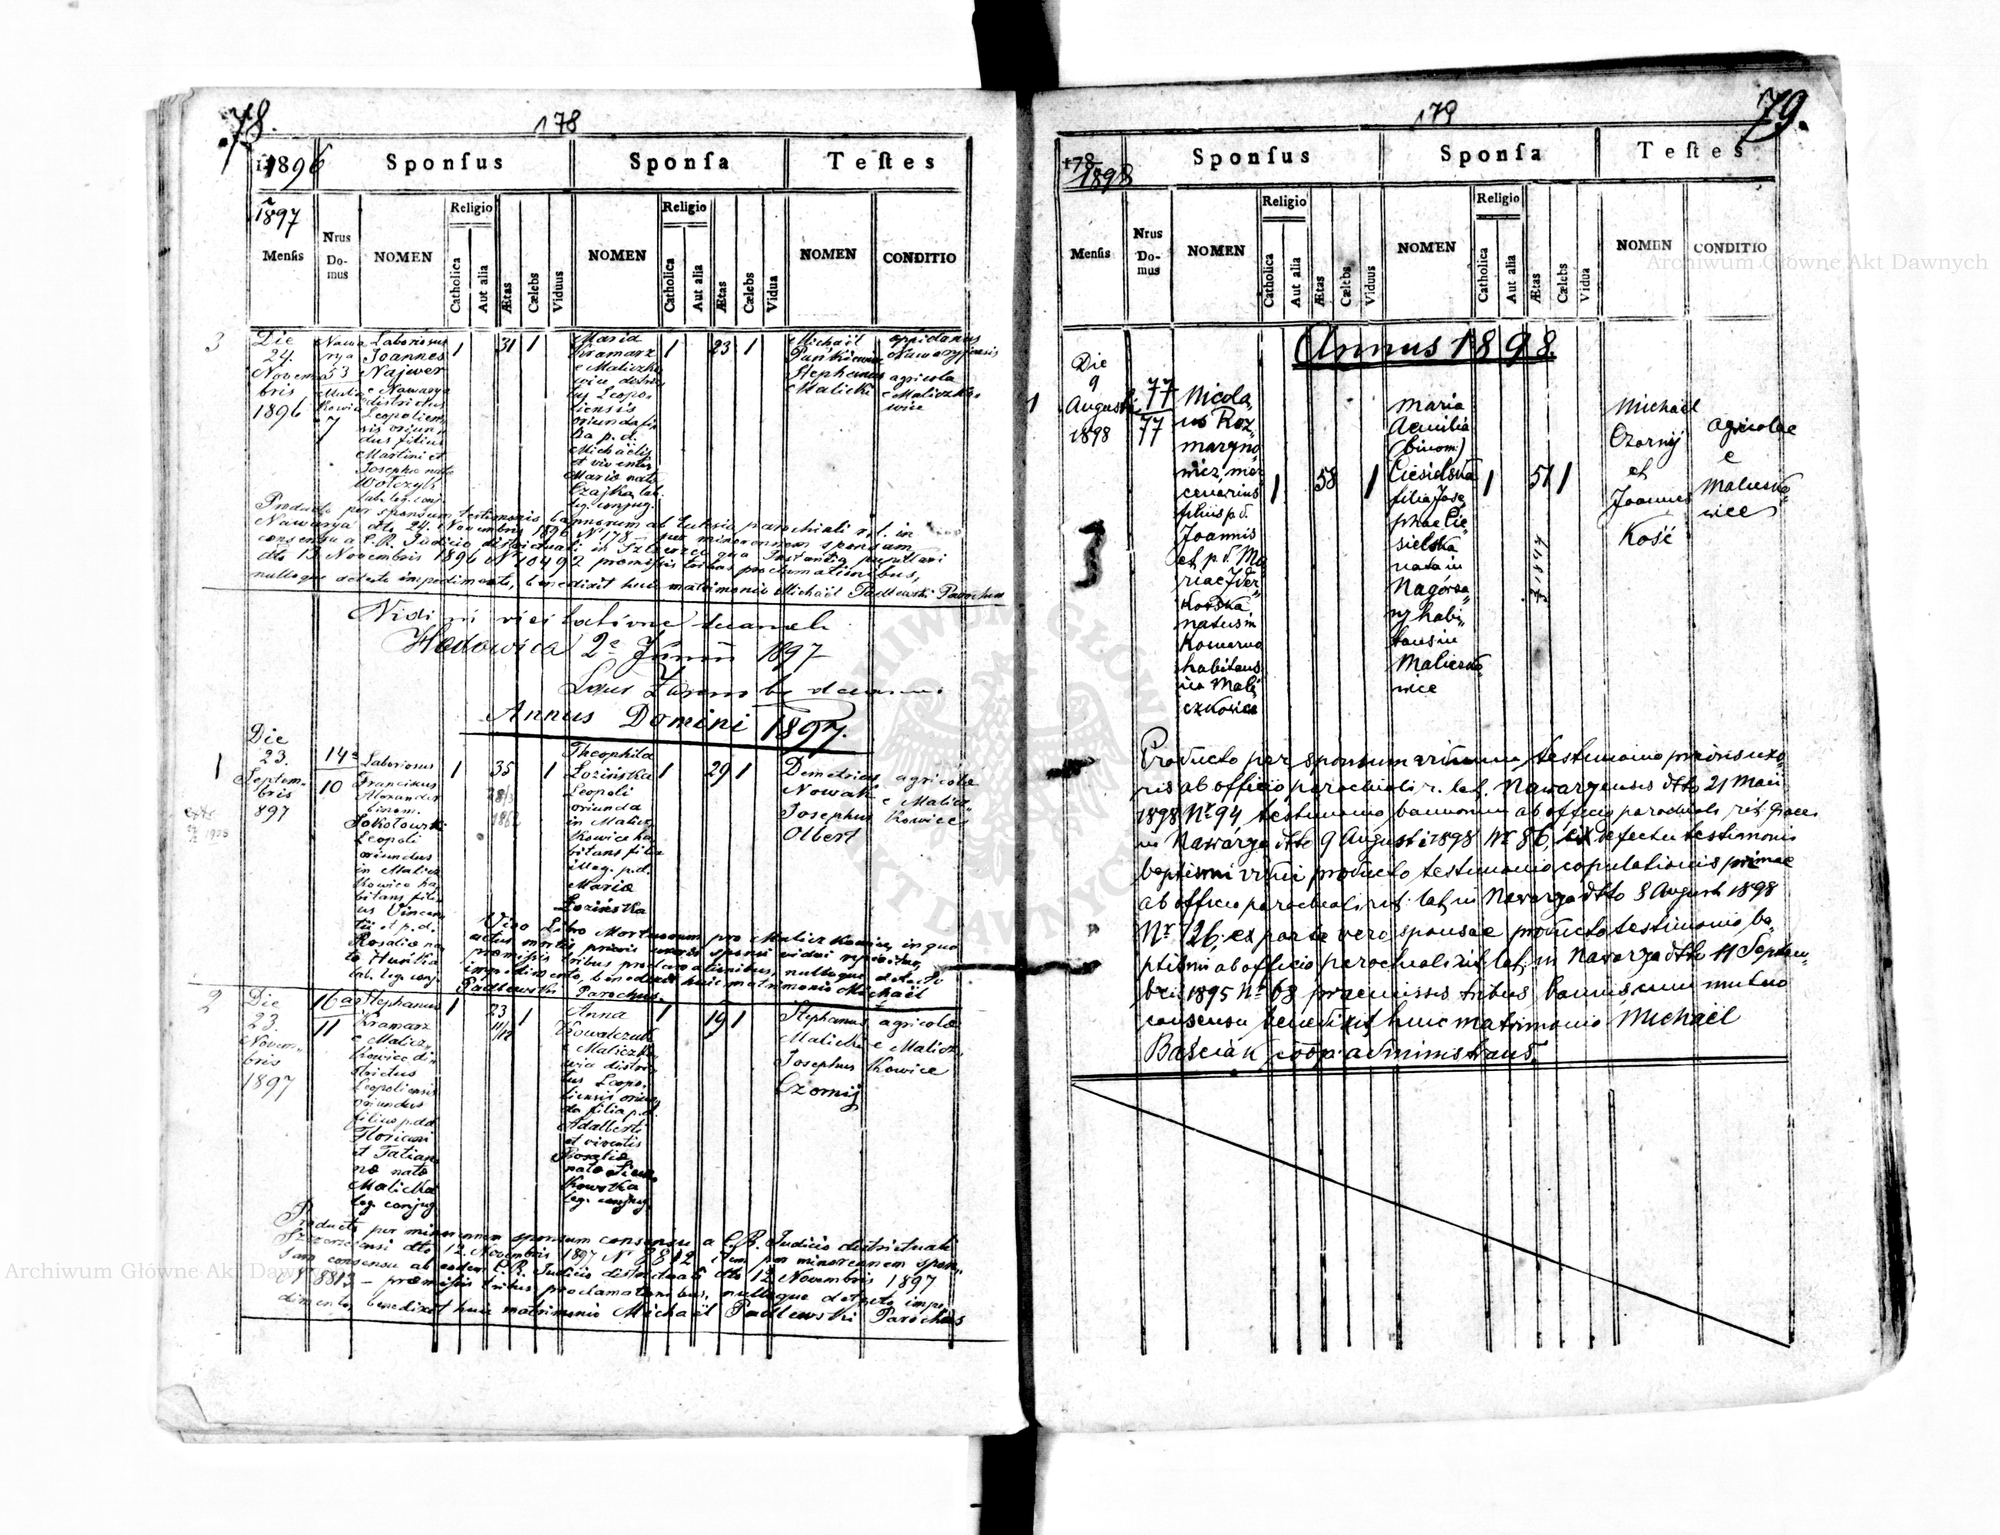 78.
178
1896
Sponsus
Sponsa
Testes
1897
Mensis
Nrus Domus
NOMEN
Religio
Catholica
Aut alia
Ætas
Cælebs
Viduus
NOMEN
Religio
Catholica
Aut alia
Ætas
Cælebs
Vidua
NOMEN
CONDITIO
3
Die
24.
Novem
bris
1896
Nawa
rya
53
Mali
kowice
7
Laboriosus
Joannes
Najwer
e Nawarya
districtus
Leopolien
sis oriun
dus filius
Martini et
Josephæ natæ
Wołczyk
lab. leg. conj.
1
31
1
Maria
Kramarz
e Maliczko
wice distric
tus Leopo
liensis
oriunda fi
lia p. d.
Michaëlis
et viventis
Mariæ natæ
Czajka, lab.
leg. conjug.
1
23
1
Michaël
Pańkiewicz
Stephanus
Malicki
oppidanus
Nawaryensis
agricola
e Maliczko
wice
Producto per sponsum testimonio bannorum ab Ecclesia parochiali r. l. in
Nawarya dto 24. Novembris 1896 N 178 – per minorennem sponsam
consensu a C. R. Judicio districtuali in Szczerzec qua Instantia pupillari
dto 13 Novembris 1896 N 10492 præmissis tribus proclamationibus,
nulloque detecto impedimento, benedixit huic matrimonio Michaël Padlewski Parochus
Vidi in visitatione decanali
Hodowica 2a Junii 1897
Annus Domini 1897.
1
Die
23.
Septem-
bris
897
14a
10
Laboriosus
Franciscus
Alexander
binom.
Sokołowski
Leopoli
oriundus
in Malicz
kowice ha
bitans fili
us Vincen
tii et p. d.
Rosaliæ na
tæ Huńka
lab. leg. conj.
1
35
1
Theophila
Łozińska
Leopoli
oriunda
in Malicz
kowice ha
bitans filia
illeg. p. d.
Mariæ
Łozińska
1
29
1
Demetrius
Nowak
Josephus
Olbert
agricolæ
e Malicz
kowice
Viso Libro Mortuorum pro Maliczkowice, in quo
actus mortis prioris uxoris sponsi vidui reperitur,
præmissis tribus proclamationibus, nulloque detecto
impedimento, benedixit huic matrimonio Michaël
Padlewski Parochus.
2
Die
23.
Novem-
bris
1897
16 ao
11
Stephanus
Kramarz
e Malicz
kowice di
strictus
Leopoliensis
oriundus
filius p. d.
Floriani
et Tatian
næ natæ
Malicka
leg. conjug.
1
23
11/12
1
Anna
Kowalczuk
e Maliczko
wice distric
tus Leopo
liensis oriun
da filia p. d.
Adalberti
et viventis
Rosaliæ
natæ Sien
kowska
leg. conjug.
1
19
1
Stephanus
Malicki
Josephus
Czornij
agricolæ
e Malicz
kowice
Producto per minorennem sponsum consensu a C. R. Judicio districtuali
Szczerzecensi dto 12. Novembris 1897 N 8812 item per minorennem spon-
sam consensu ab eodem C. R. Judicio districtuali dto 12 Novembris 1897
N 8813 – præmissis tribus proclamationibus, nulloque detecto impe
dimento, benedixit huic matrimonio Michaël Padlewski Parochus
79.
179
178
1898
Sponsus
Sponsa
Testes
Mensis
Nrus Domus
NOMEN
Religio
Catholica
Aut alia
Ætas
Cælebs
Viduus
NOMEN
Religio
Catholica
Aut alia
Ætas
Cælebs
Vidua
NOMEN
CONDITIO
Annus 1898.
1
Die
9
Augusti
1898
77
77
Nicola
us Roz
maryno
wicz, mer
cenarius
filius p. d.
Joannis
et p. d. Ma
riae Zder
kowska
natus in
Komarno
habitans
in Mali
czkowice
1
58
1
Maria
Aemilia
(binom.)
Ciesielska
filia Jose
phae Cie
sielska
nata in
Nagórza
ny habi
tans in
Maliczko
wice
1
51
1
Michaël
Czornij
et
Joannes
Kość
agricolae
e
Maliczko
wice
Producto per sponsum viduum testimonio prioris uxo
ris ab officio parochiali r. lat. Nawaryensis dto 21 Maii
1898 Nr 94 testimonio bannorum ab officio parochiali rit. graec.
in Nawarya dto 9 Augusti 1898 Nr 86, ex defectu testimonii
baptismi vidui producto testimonio copulationis primae
ab officio parochiali rit. lat. in Nawarya dto 8 Augusti 1898
Nr 126, ex parte vero sponsae producto testimonio ba
ptismi ab officio parochiali rit. lat. in Nawarya dto 11 Septem
bris 1895 Nr 63 praemissis tribus bannis cum mutuo
consensu benedixit huic matrimonio Michaël
Baściak coop. administrans.
Archiwum Główne Akt Dawnych
Archiwum Główne Akt Dawnych
ARCHIWUM GŁÓWNE AKT DAWNYCH